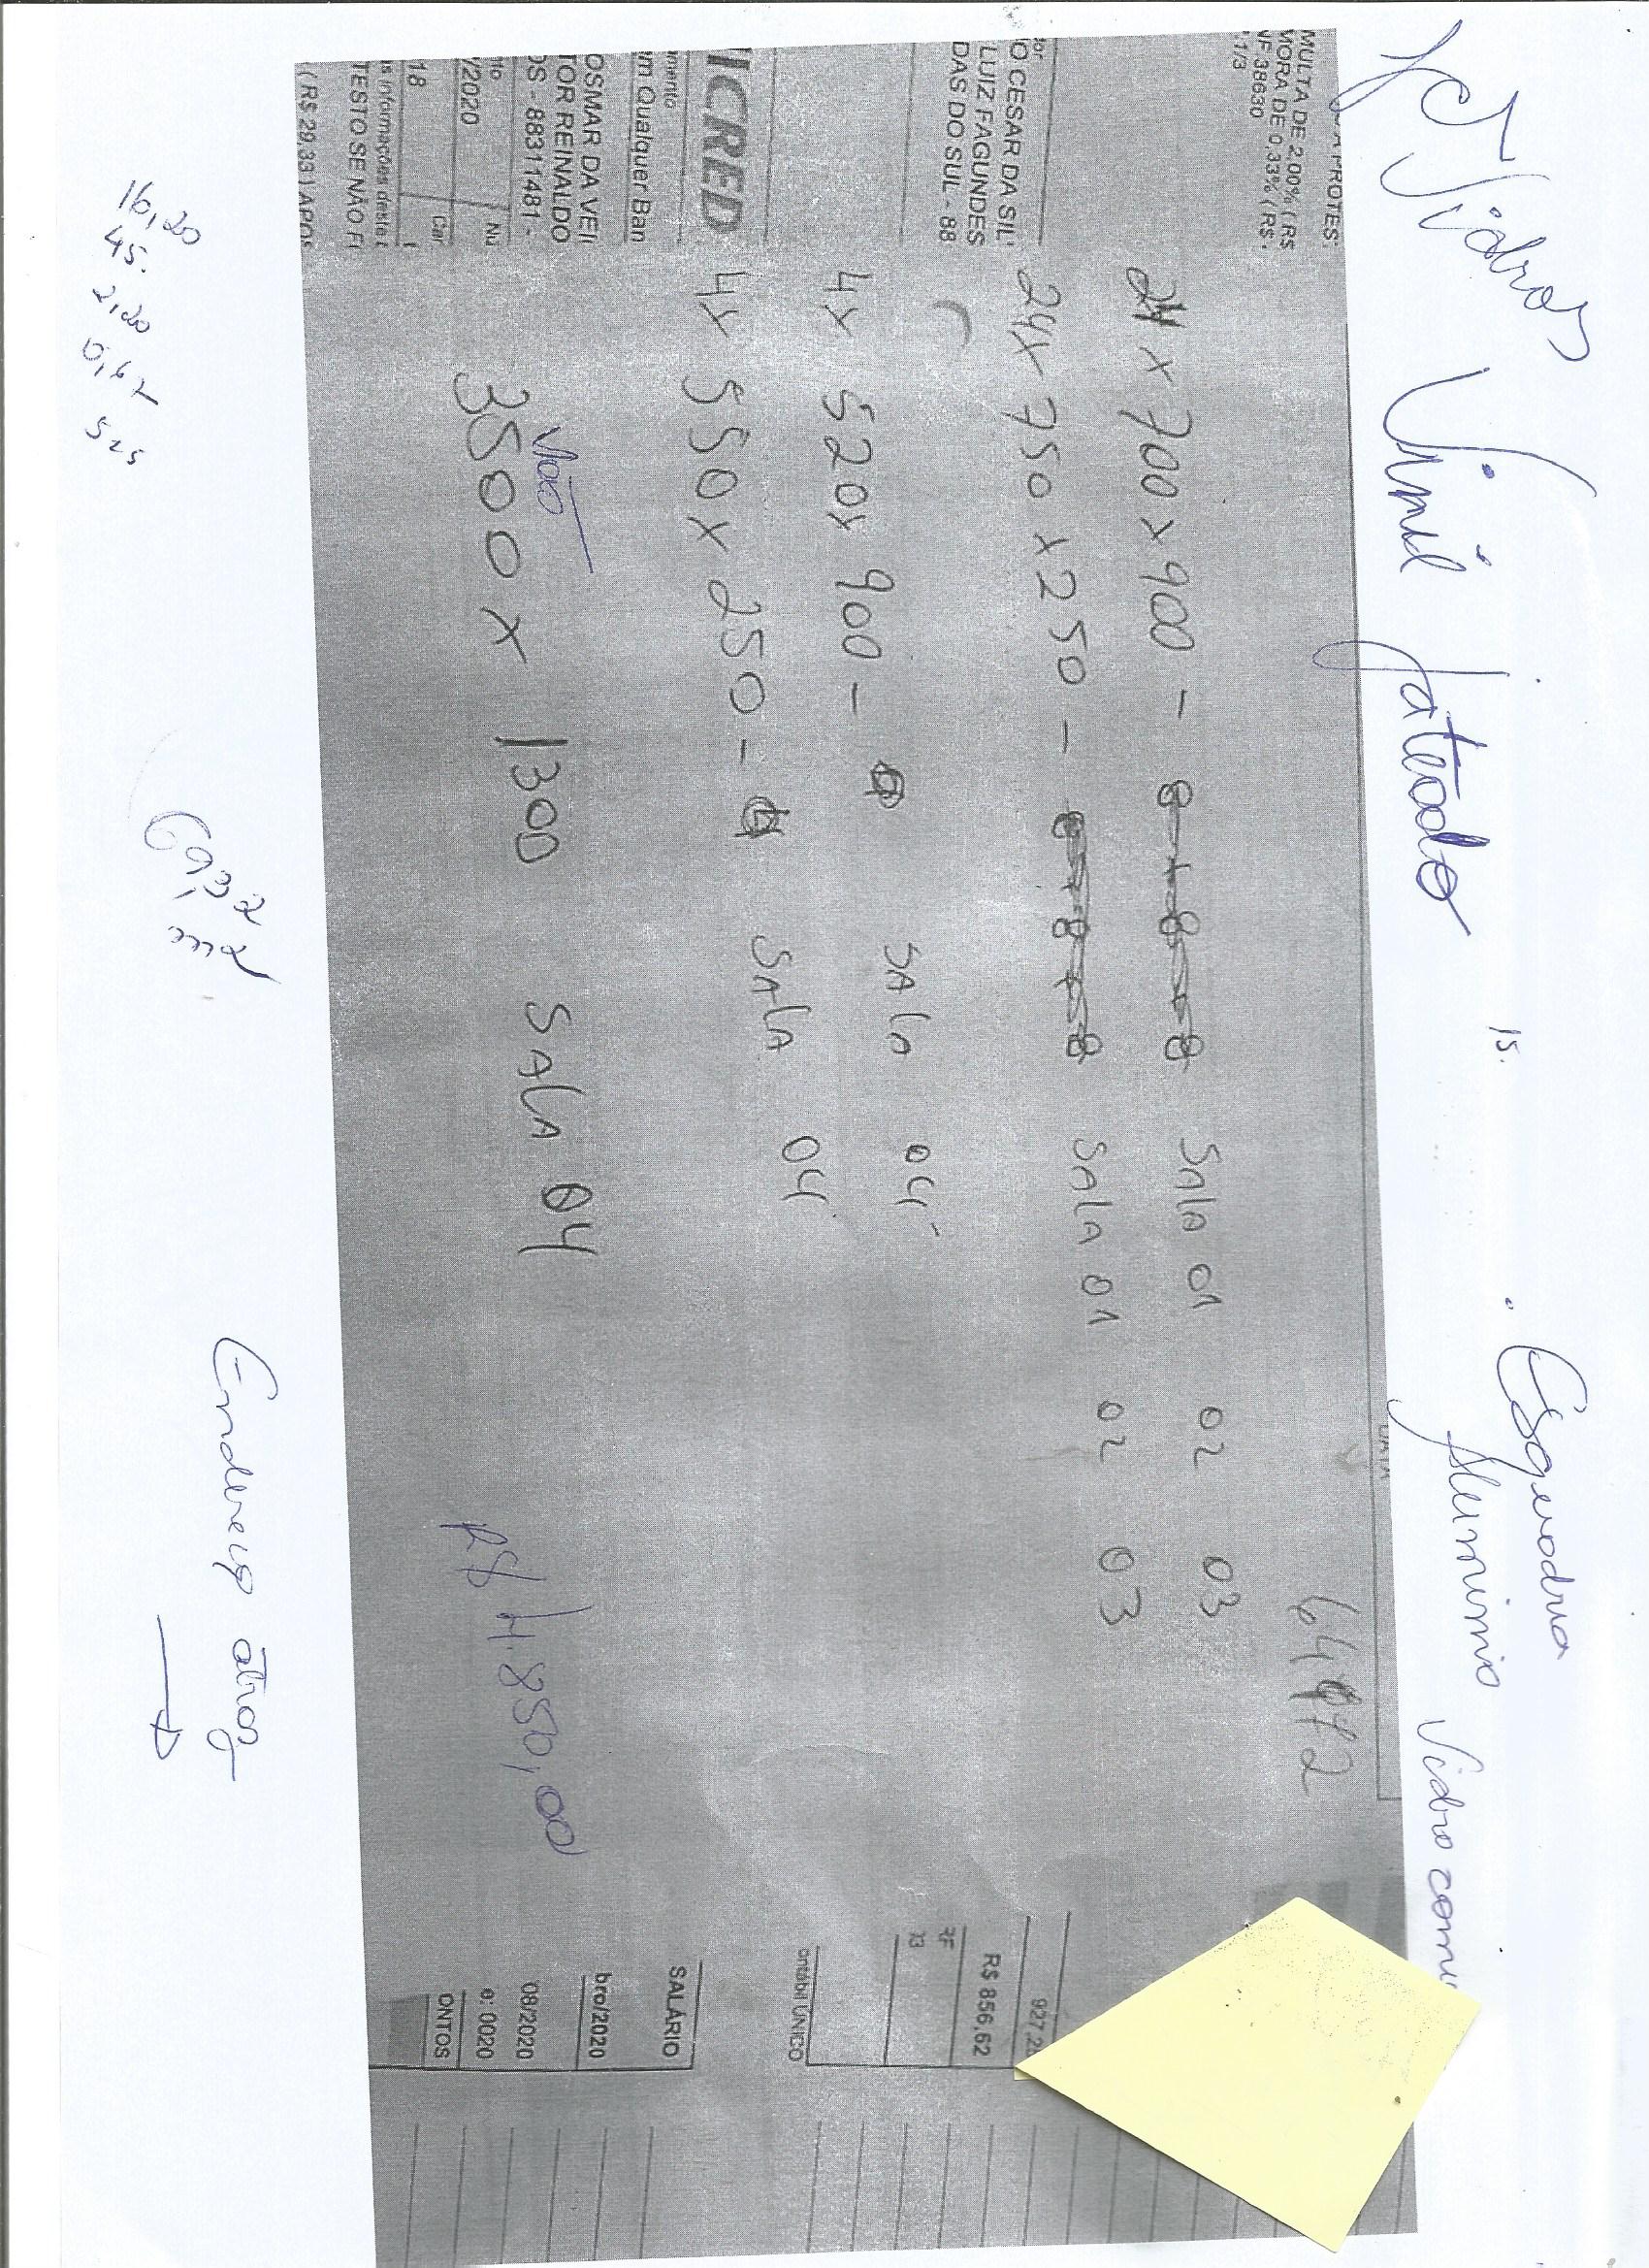 Vidros Vinil Jateado
15.
Esquadria
Aluminio
Vidro comu
MULTA DE 2,00% (R$
MORA DE 0,33% (R$
NF 38630
1/3
64
24 x 700 x 900 - 8+8+8 SALA 01 02 03
24x 750 x 250 - 8+8+8 SALA 01 02 03
IO CESAR DA SIL
LUIZ FAGUNDES
DAS DO SUL - 88
927,2
R$ 856,62
4x 520x 900 - SALA 04
4x 550 x 250 - SALA 04
ICRED
m Qualquer Ban
OSMAR DA VEI
TOR REINALDO
OS - 88311481 -
Vão
3500 x 1300 SALA 04
R$ 4.850,00
ontábil ÚNICO
SALÁRIO
bro/2020
08/2020
e: 0020
ONTOS
/2020
Nu
18
Car
s informações deste
TESTO SE NÃO F
( R$ 29,33 ) APÓS
16,20
45.
2,20
0,67
525
69,37
Endereço atras